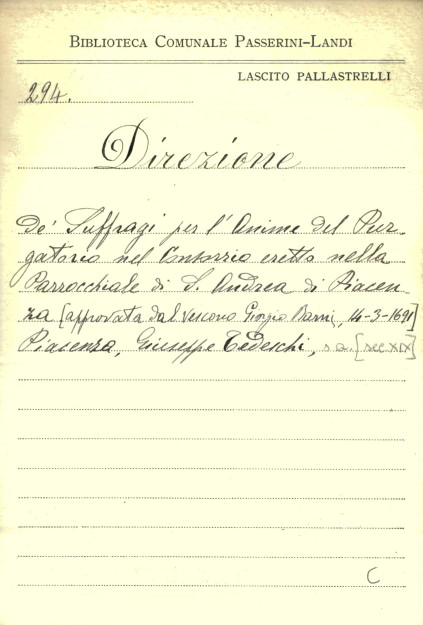 BIBLIOTECA COMUNALE PASSERINI-LANDI
LASCITO PALLASTRELLI
294.
Direzione
De' Suffragi per l'Anime del Pur-
gatorio nel Consorzio eretto nella
Parrocchiale di S. Andrea di Piacen-
za [approvata dal vescovo Giorgio Barni, 14-3-1691]
Piacenza, Giuseppe Tedeschi, s.a. [sec XIX]
C